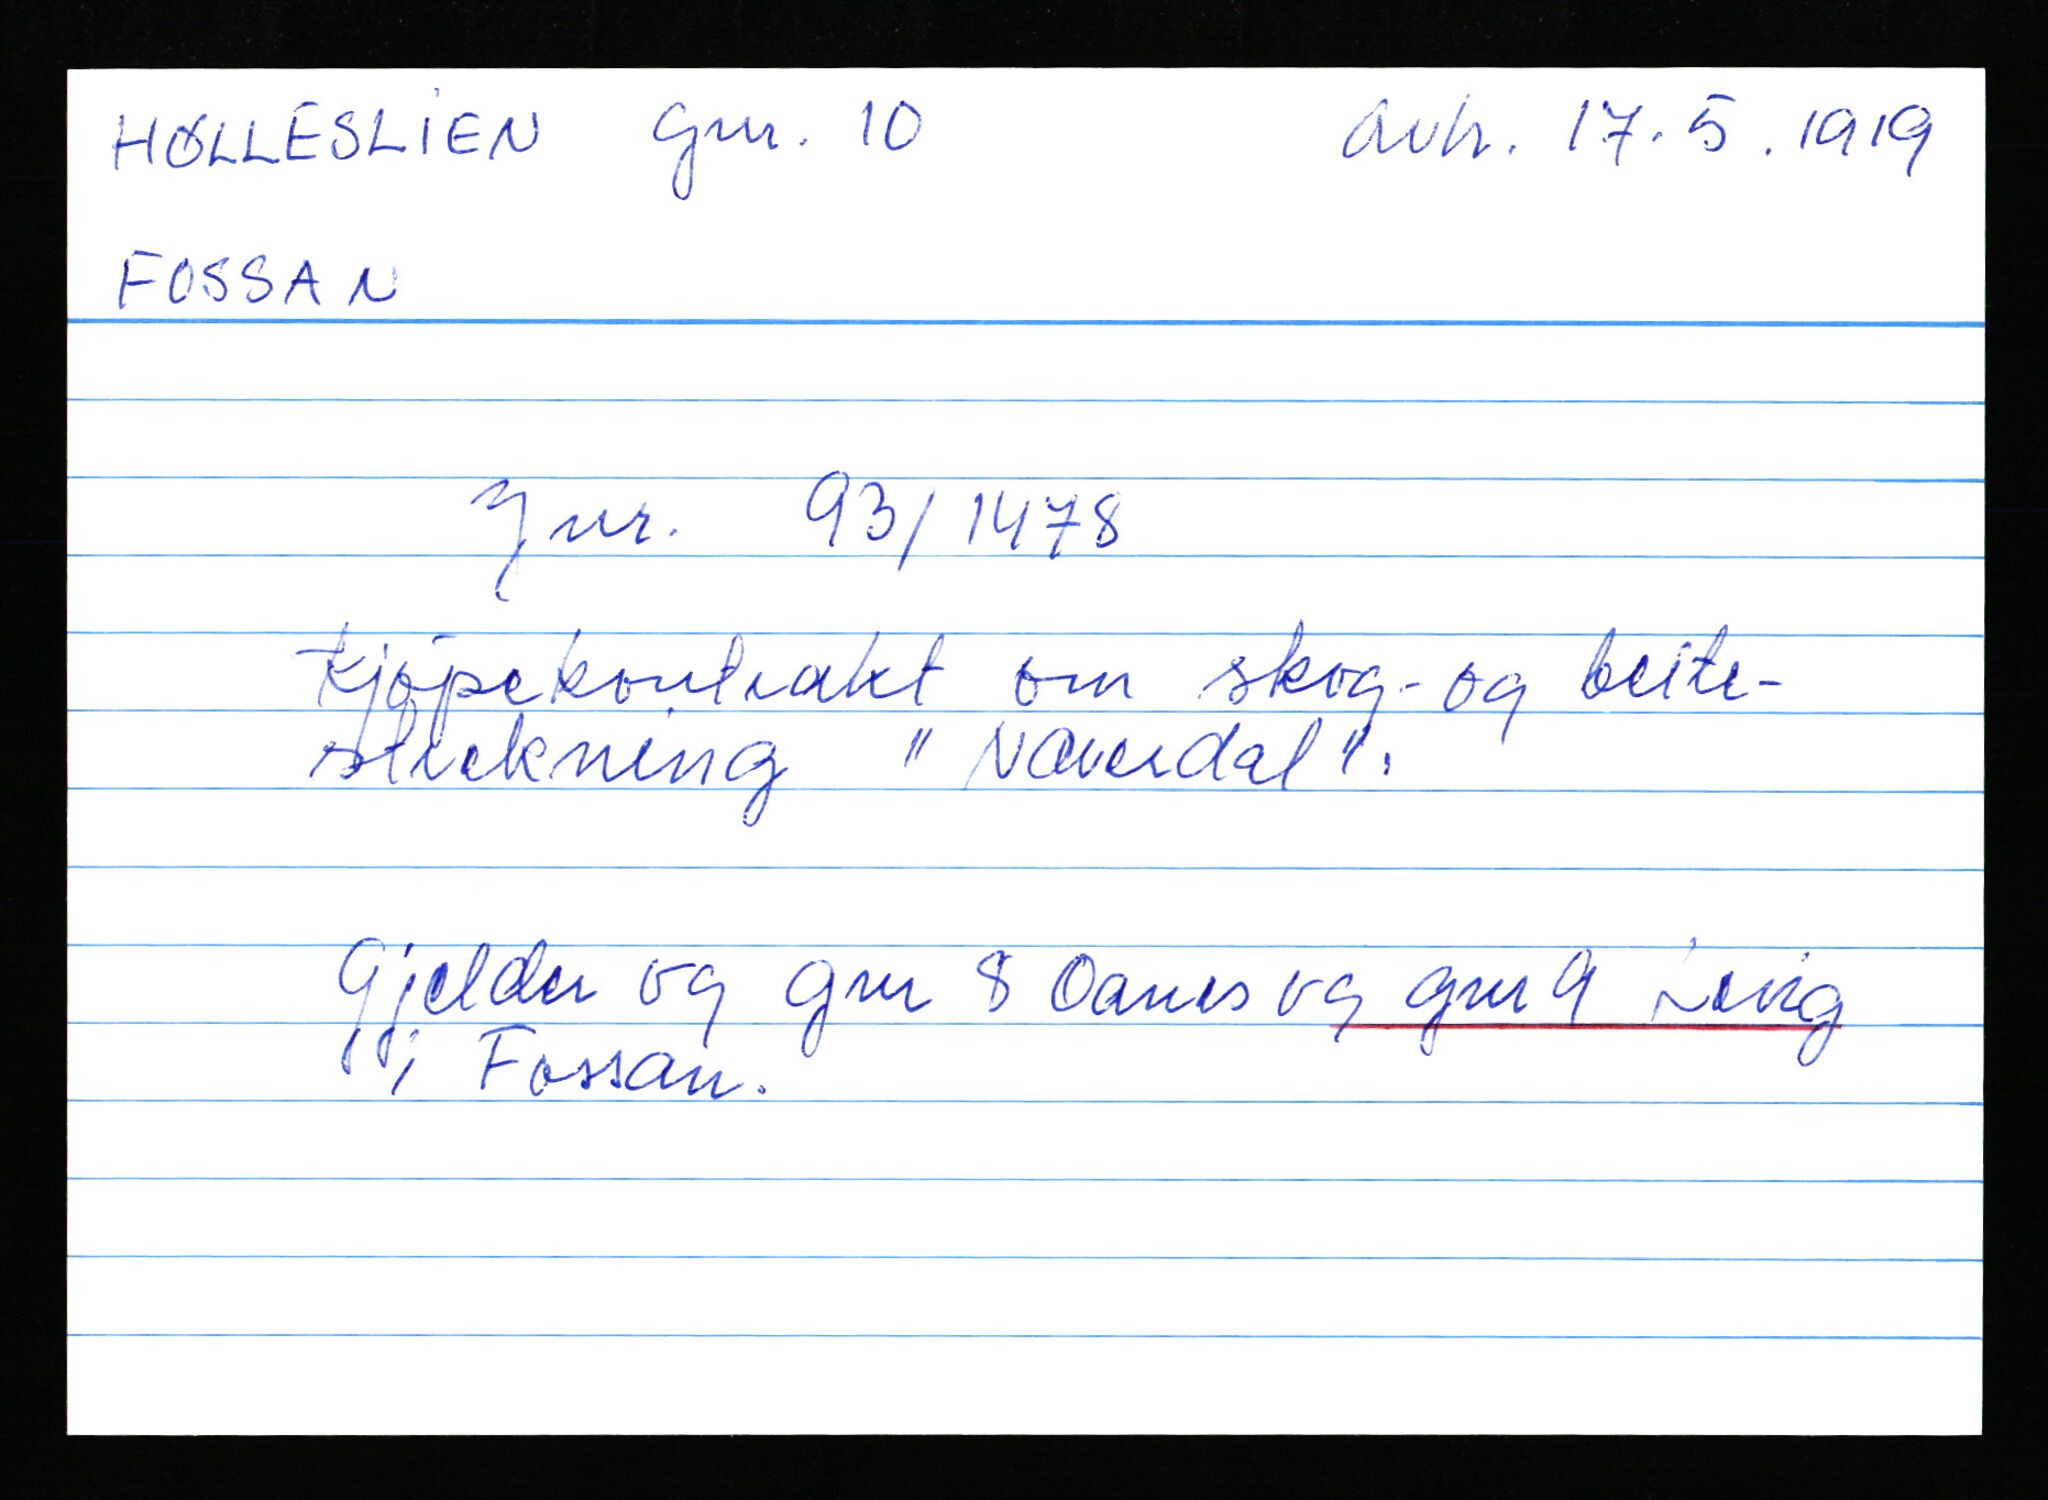 HØLLESLIEN gnr. 10 avh. 17.5.1919
FOSSAN
Jnr. 93/1478
Kjøpekontrakt om skog- og beite-
strekning "Næverdal".
Gjelder og gnr 8 Oanes og gnr 9 Levig
i Fossan.